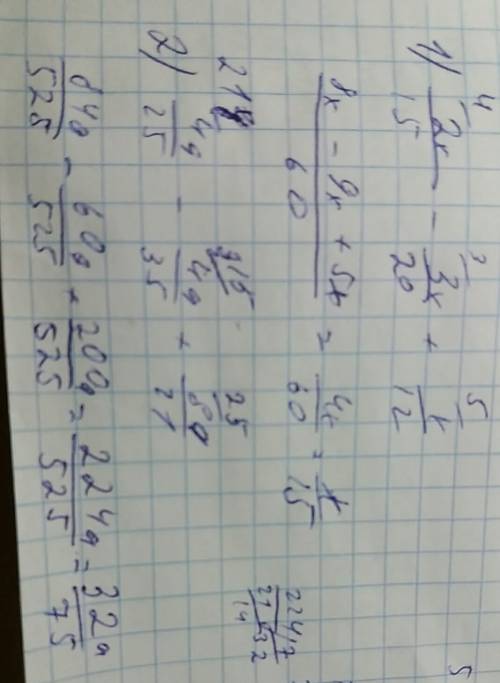 1) ⁴ 2x/15 - ³ 3x/20 + ⁵ x/12
(8x - 9x + 5x)/60 = 4x/60 = x/15
2) ²¹ 4a/25 - ¹⁵ 4a/35 + ²⁵ 8a/21
84a/525 - 60a/525 + 200a/525 = 224a/525 = 32a/75
224 7
21 32
14
5